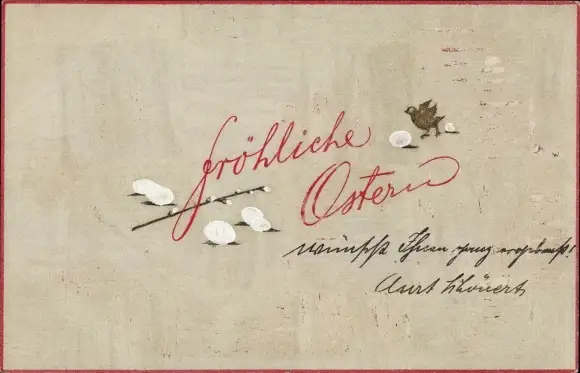 fröhliche
Ostern
wünscht Ihnen ganz ergebenst!
Kurt